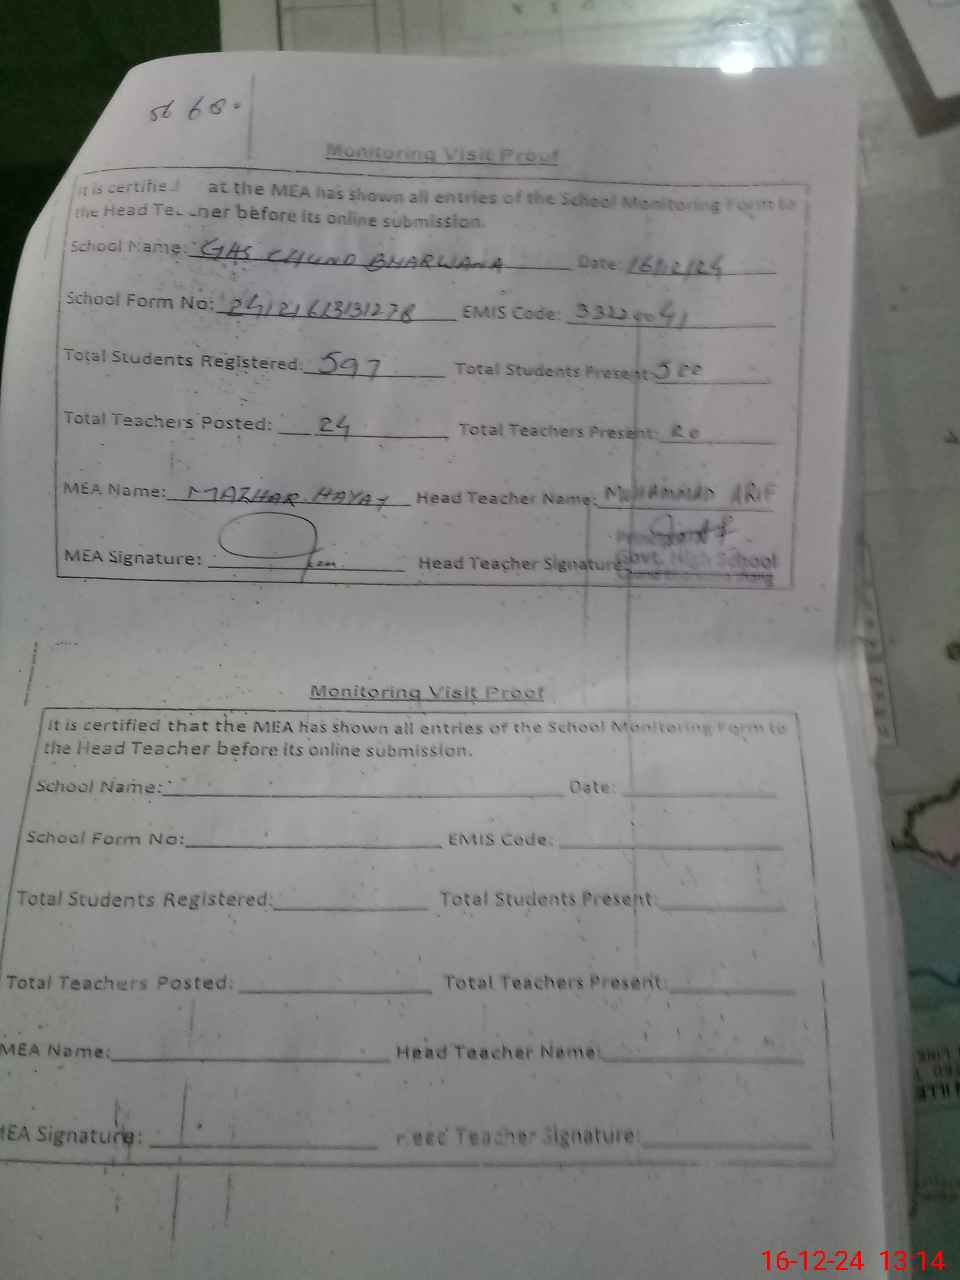 Monitoring Visit Proof
It is certified at the MEA has shown all entries of the School Monitoring Form to
the Head Teacher before its online submission.
School Name: GHS CHUND BHARWANA Date: 16/12/24
School Form No: EMIS Code:
Total Students Registered: 597 Total Students Present:
Total Teachers Posted: 24 Total Teachers Present:
MEA Name: MAZHAR HAYAT Head Teacher Name: Muhammad ARIF
MEA Signature: Head Teacher Signature:
Govt. High School
Monitoring Visit Proof
It is certified that the MEA has shown all entries of the School Monitoring Form to
the Head Teacher before its online submission.
School Name: Date:
School Form No: EMIS Code:
Total Students Registered: Total Students Present:
Total Teachers Posted: Total Teachers Present:
MEA Name: Head Teacher Name:
MEA Signature: Head Teacher Signature:
16-12-24 13:14